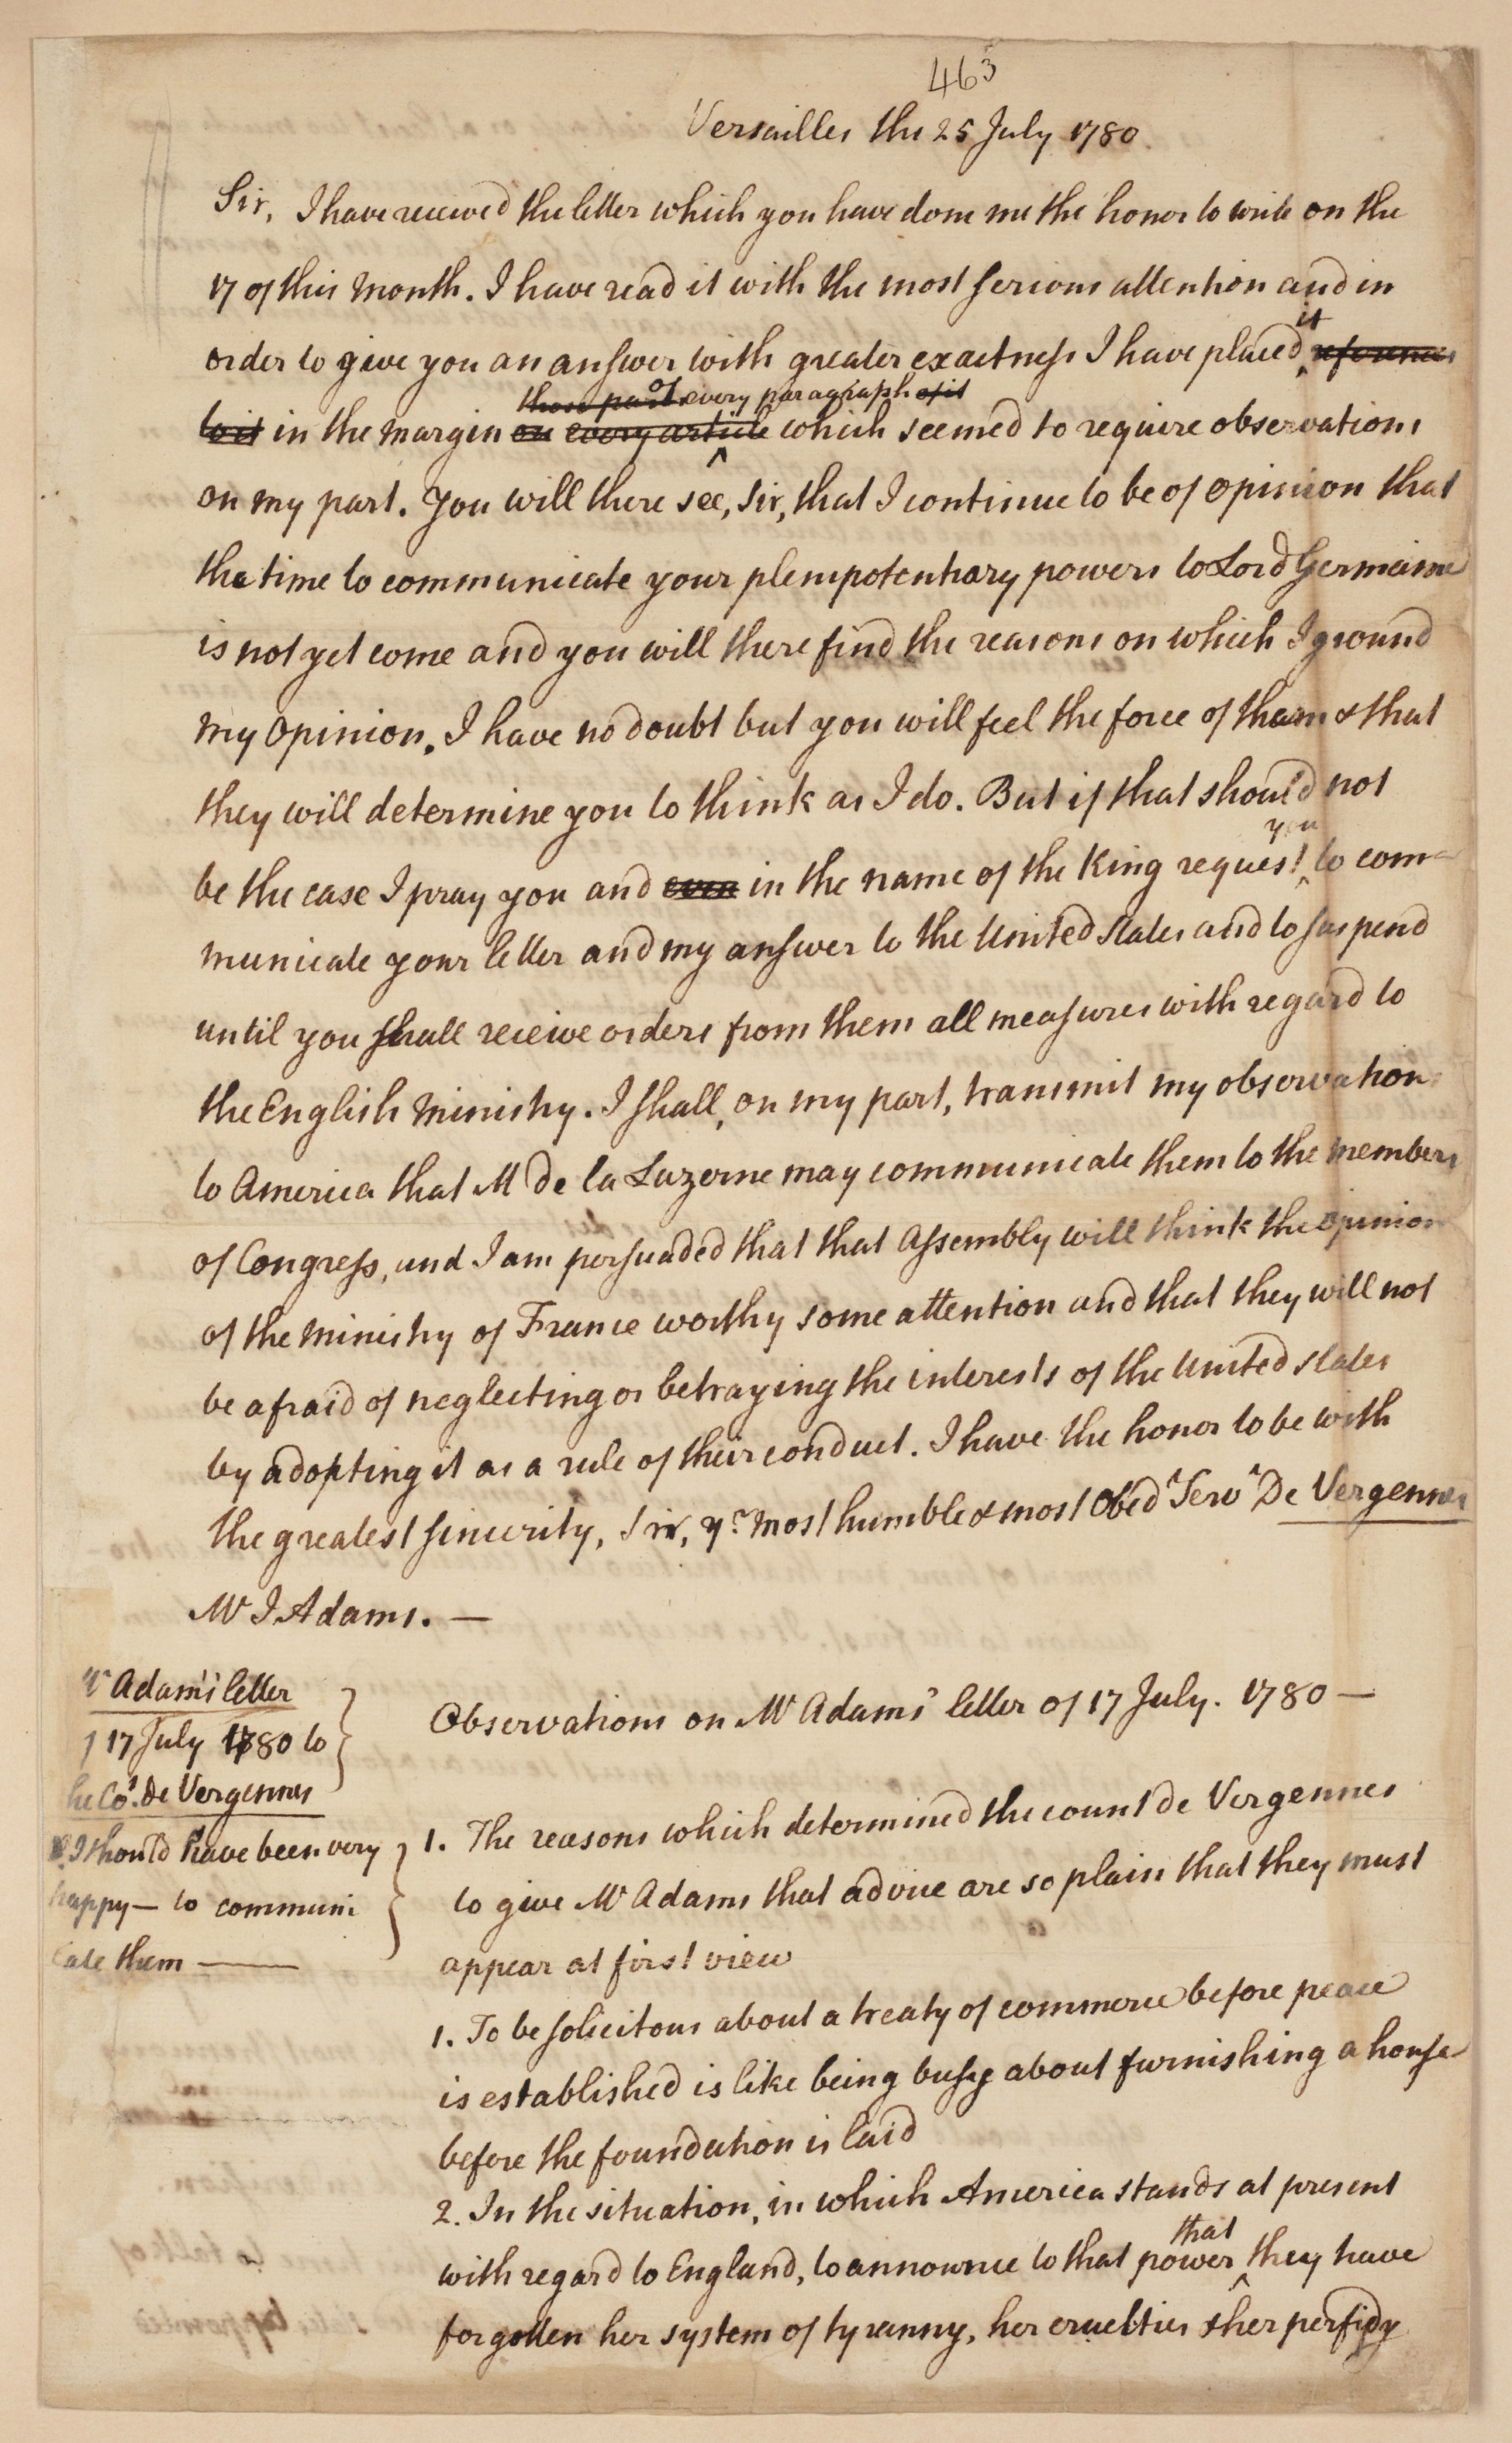 463
Versailles the 25 July 1780.
Sir, I have received the letter which you have done me the honor to write on the
17 of this Month. I have read it with the most serious attention and in
it
order to give you an answer with greater exactness I have placed references
those parts of every paragraph of it
to it in the margin on every article which seemed to require observations
on my part. You will there see, Sir, that I continue to be of opinion that
the time to communicate your plenipotentiary powers to Lord Germaine
is not yet come and you will there find the reasons on which I ground
my opinion. I have no doubt but you will feel the force of them & that
they will determine you to think as I do. But if that should not
you
be the case I pray you and even in the name of the King request to com-
municate your letter and my answer to the United States and to suspend
until you shall receive orders from them all measures with regard to
the English Ministry. I shall, on my part, transmit my observations
to America that M de la Luzerne may communicate them to the members
of Congress, and I am persuaded that that Assembly will think the opinion
of the Ministry of France worthy some attention and that they will not
be afraid of neglecting or betraying the interests of the United States
by adopting it as a rule of their conduct. I have the honor to be with
the greatest sincerity, Sir, yr. most humble & most Obedt Servt De Vergennes
Mr J Adams. —
Mr Adams's letter
17 July 1780 to
the Ct. de Vergennes
I should have been very
happy — to communi
cate them —
Observations on Mr Adams' letter of 17 July. 1780 —
1. The reasons which determined the count de Vergennes
to give Mr Adams that advice are so plain that they must
appear at first view
1. To be solicitous about a treaty of commerce before peace
is established is like being busy about furnishing a house
before the foundation is laid
2. In the situation, in which America stands at present
that
with regard to England, to announce to that power they have
forgotten her system of tyranny, her cruelties & her perfidy